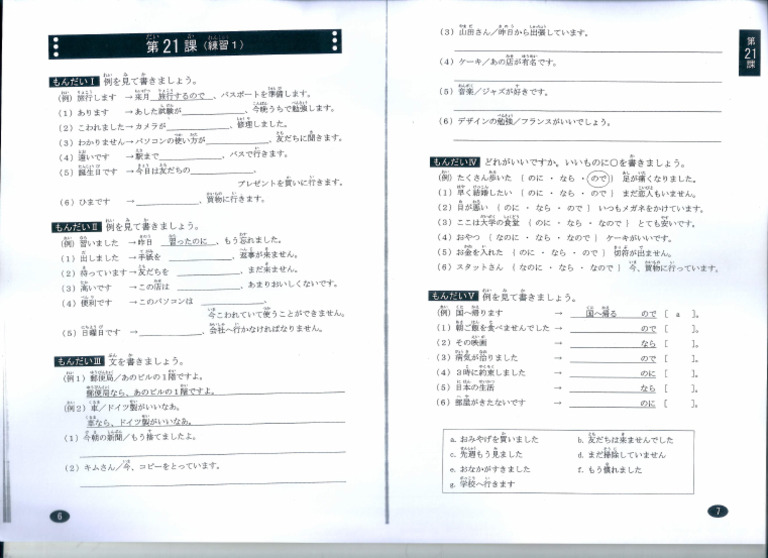 第21課（練習1）
もんだいⅠ 例を見て書きましょう。
（例）旅行します →来月 旅行するので 、パスポートを準備します。
（1）あります →あした試験が 、今晩うちで勉強します。
（2）こわれました→カメラが 、修理しました。
（3）わかりません→パソコンの使い方が 、友だちに聞きます。
（4）遠いです →駅まで 、バスで行きます。
（5）誕生日です →今日は友だちの 、
プレゼントを買いに行きます。
（6）ひまです → 、買物に行きます。
もんだいⅡ 例を見て書きましょう。
（例）習いました →昨日 習ったのに 、もう忘れました。
（1）出しました →手紙を 、返事が来ません。
（2）待っています→友だちを 、まだ来ません。
（3）高いです →この店は 、あまりおいしくないです。
（4）便利です →このパソコンは 、
今こわれていて使うことができません。
（5）日曜日です → 、会社へ行かなければなりません。
もんだいⅢ 文を書きましょう。
（例1）郵便局／あのビルの1階ですよ。
郵便局なら、あのビルの1階ですよ。
（例2）車／ドイツ製がいいなあ。
車なら、ドイツ製がいいなあ。
（1）今朝の新聞／もう捨てましたよ。
（2）キムさん／今、コピーをとっています。
6
（3）山田さん／昨日から出張しています。
（4）ケーキ／あの店が有名です。
（5）音楽／ジャズが好きです。
（6）デザインの勉強／フランスがいいでしょう。
第21課
もんだいⅣ どれがいいですか。いいものに○を書きましょう。
（例）たくさん歩いた ｛のに ・ なら ・ ので｝ 足が痛くなりました。
（1）早く結婚したい ｛のに ・ なら ・ ので｝ まだ恋人もいません。
（2）目が悪い ｛のに ・ なら ・ ので｝ いつもメガネをかけています。
（3）ここは大学の食堂 ｛なのに ・ なら ・ なので｝ とても安いです。
（4）おやつ ｛なのに ・ なら ・ なので｝ ケーキがいいです。
（5）お金を入れた ｛のに ・ なら ・ ので｝ 切符が出ません。
（6）スタットさん ｛なのに ・ なら ・ なので｝ 今、買物に行っています。
もんだいⅤ 例を見て書きましょう。
（例）国へ帰ります → 国へ帰る ので［ a ］。
（1）朝ご飯を食べませんでした → ので［ ］。
（2）その映画 → なら［ ］。
（3）病気が治りました → ので［ ］。
（4）3時に約束しました → のに［ ］。
（5）日本の生活 → なら［ ］。
（6）部屋がきたないです → のに［ ］。
a. おみやげを買いました b. 友だちは来ませんでした
c. 先週もう見ました d. まだ掃除していません
e. おなかがすきました f. もう慣れました
g. 学校へ行きます
7